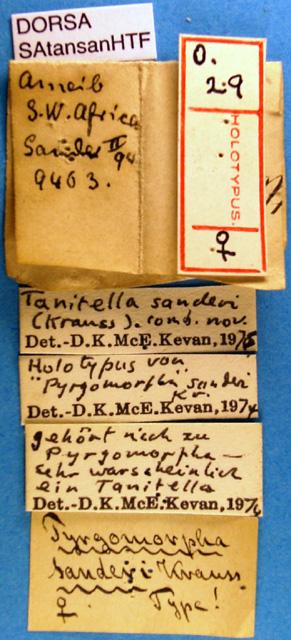 DORSA
SAtansanHTF
Ameib
S.W. Africa
Sander II 94
9403.
O.
29
HOLOTYPUS.
♀
Tanitella sanderi
(Krauss). comb. nov.
Det.-D.K.McE.Kevan, 1975
Holotypus von
"Pyrgomorpha" sanderi
Kr.
Det.-D.K.McE.Kevan, 1974
gehört nich zu
Pyrgomorpha —
sehr warscheinlich
ein Tanitella
Det.-D.K.McE.Kevan, 1974
Pyrgomorpha
Sanderi Krauss
♀. Type!